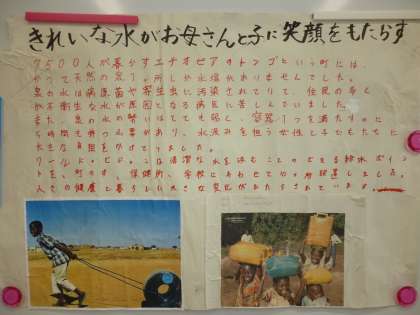 きれいな水がお母さんと子に笑顔をもたらす
7500人が暮らすエチオピアのトンゴという町には、
やって天然の泉1ヶ所しか水場がありませんでした。
泉の水は病原菌や寄生虫に汚染されており、住民の多く
が不衛生な水が原因となる病気に苦しんでいました。
また、泉の水の勢いはとても弱く、容器1つを満たすのに
5時間も待つ必要があり、水汲みを担う女性と子どもたちに
大きな負担をかけてりました。
ワールド・ビジョンは清潔な水を汲むことのできる給水ポイン
トを、町の、保健所、学校にあわせて ヶ所設置しました。
人々の健康と暮らしに大きな変化がもたらされています。